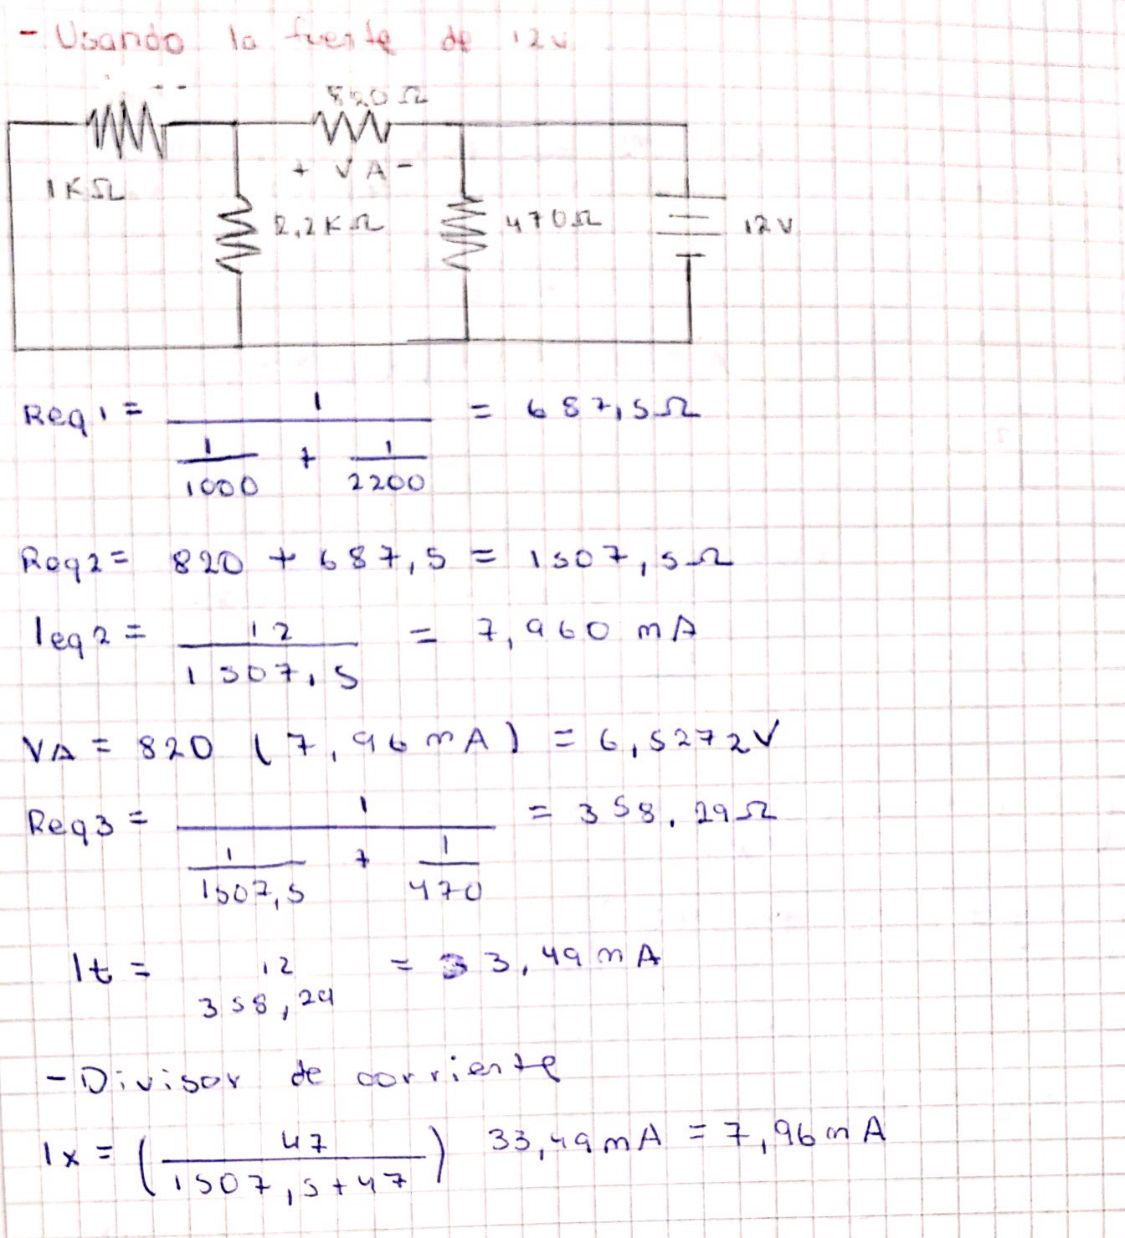 - Usando la fuente de 12v
820Ω
+ VA -
1KΩ
2,2KΩ
470Ω
12V
Req1 = 1 / (1/1000 + 1/2200) = 687,5Ω
Req2 = 820 + 687,5 = 1507,5Ω
Ieq2 = 12 / 1507,5 = 7,960 mA
VA = 820 (7,96 mA) = 6,5272V
Req3 = 1 / (1/1507,5 + 1/470) = 358,29Ω
It = 12 / 358,29 = 33,49 mA
- Divisor de corriente
Ix = (47 / 1507,5+47) 33,49mA = 7,96mA